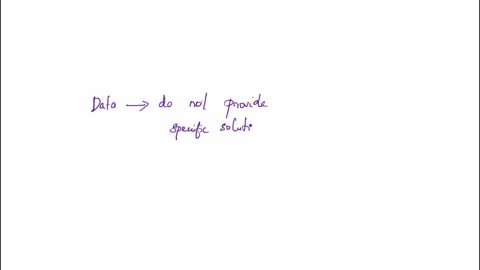 Data → do not provide
specific soluti